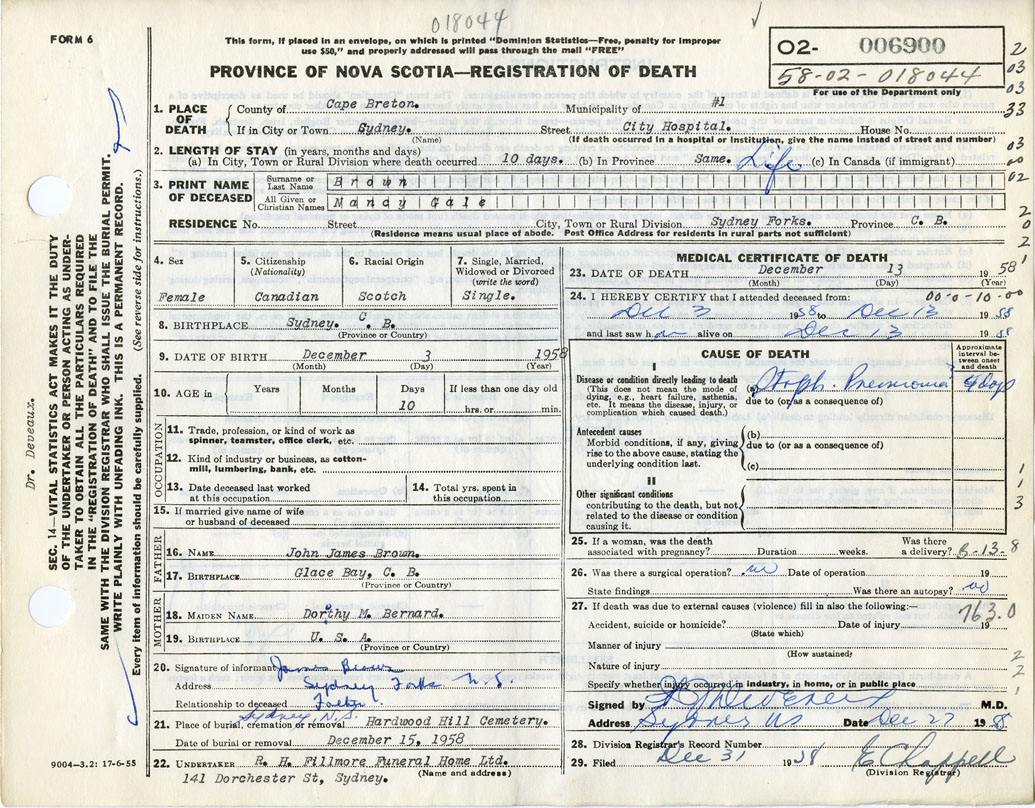 018044
FORM 6
This form, if placed in an envelope, on which is printed "Dominion Statistics—Free, penalty for improper
use $50," and properly addressed will pass through the mail "FREE"
PROVINCE OF NOVA SCOTIA—REGISTRATION OF DEATH
02- 006900
58-02-018044
For use of the Department only
2
03
03
33
03
00
02
2
0
2
1
1. PLACE OF DEATH
County of Cape Breton. Municipality of #1
If in City or Town Sydney. Street City Hospital. House No.
(Name) (If death occurred in a hospital or institution, give the name instead of street and number)
2. LENGTH OF STAY (in years, months and days)
(a) In City, Town or Rural Division where death occurred 10 days. (b) In Province Same. Life (c) In Canada (if immigrant)
3. PRINT NAME OF DECEASED
Surname or Last Name Brown
All Given or Christian Names Mandy Gale
RESIDENCE No. Street City, Town or Rural Division Sydney Forks. Province C. B.
(Residence means usual place of abode. Post Office Address for residents in rural parts not sufficient)
4. Sex
Female
5. Citizenship
(Nationality)
Canadian
6. Racial Origin
Scotch
7. Single, Married,
Widowed or Divorced
(write the word)
Single.
8. BIRTHPLACE Sydney. C. B.
(Province or Country)
9. DATE OF BIRTH December 3 1958
(Month) (Day) (Year)
10. AGE in
Years
Months
Days
10
If less than one day old
hrs. or min.
OCCUPATION
11. Trade, profession, or kind of work as
spinner, teamster, office clerk, etc.
12. Kind of industry or business, as cotton-
mill, lumbering, bank, etc.
13. Date deceased last worked
at this occupation
14. Total yrs. spent in
this occupation
15. If married give name of wife
or husband of deceased
FATHER
16. NAME John James Brown.
17. BIRTHPLACE Glace Bay, C. B.
(Province or Country)
MOTHER
18. MAIDEN NAME Dorthy M. Bernard.
19. BIRTHPLACE U. S. A.
(Province or Country)
20. Signature of informant James Brown
Address Sydney Forks N.S.
Relationship to deceased Father.
Sydney, N.S.
21. Place of burial, cremation or removal Hardwood Hill Cemetery.
Date of burial or removal December 15, 1958
22. UNDERTAKER R. H. Fillmore Funeral Home Ltd.
(Name and address)
141 Dorchester St, Sydney.
9004—3.2: 17-6-55
MEDICAL CERTIFICATE OF DEATH
23. DATE OF DEATH December 13 1958
(Month) (Day) (Year)
24. I HEREBY CERTIFY that I attended deceased from: 00-0-10-00
Dec 3 1958 to Dec 13 1958
and last saw h alive on Dec 13 1958
CAUSE OF DEATH
Approximate
interval be-
tween onset
and death
I
Disease or condition directly leading to death
(This does not mean the mode of
dying, e.g., heart failure, asthenia,
etc. It means the disease, injury, or
complication which caused death.)
(a) Staph. Pneumonia days
due to (or as a consequence of)
Antecedent causes
Morbid conditions, if any, giving
rise to the above cause, stating the
underlying condition last.
(b)
due to (or as a consequence of)
(c)
II
Other significant conditions
contributing to the death, but not
related to the disease or condition
causing it.
1
1
3
25. If a woman, was the death
associated with pregnancy? Duration weeks.
Was there
a delivery? 6-13-8
26. Was there a surgical operation? no Date of operation 19
State findings Was there an autopsy? no
27. If death was due to external causes (violence) fill in also the following:—
763.0
Accident, suicide or homicide? Date of injury 19
(State which)
Manner of injury
(How sustained)
Nature of injury
2
2
1
Specify whether injury occurred in industry, in home, or in public place
Signed by M.D.
Address Sydney NS Date Dec 27 1958
28. Division Registrar's Record Number
29. Filed Dec 31 1958 E Chappell
(Division Registrar)
Dr. Deveaux.
SEC. 14—VITAL STATISTICS ACT MAKES IT THE DUTY
OF THE UNDERTAKER OR PERSON ACTING AS UNDER-
TAKER TO OBTAIN ALL THE PARTICULARS REQUIRED
IN THE "REGISTRATION OF DEATH" AND TO FILE THE
SAME WITH THE DIVISION REGISTRAR WHO SHALL ISSUE THE BURIAL PERMIT.
WRITE PLAINLY WITH UNFADING INK. THIS IS A PERMANENT RECORD.
Every item of information should be carefully supplied. (See reverse side for instructions.)